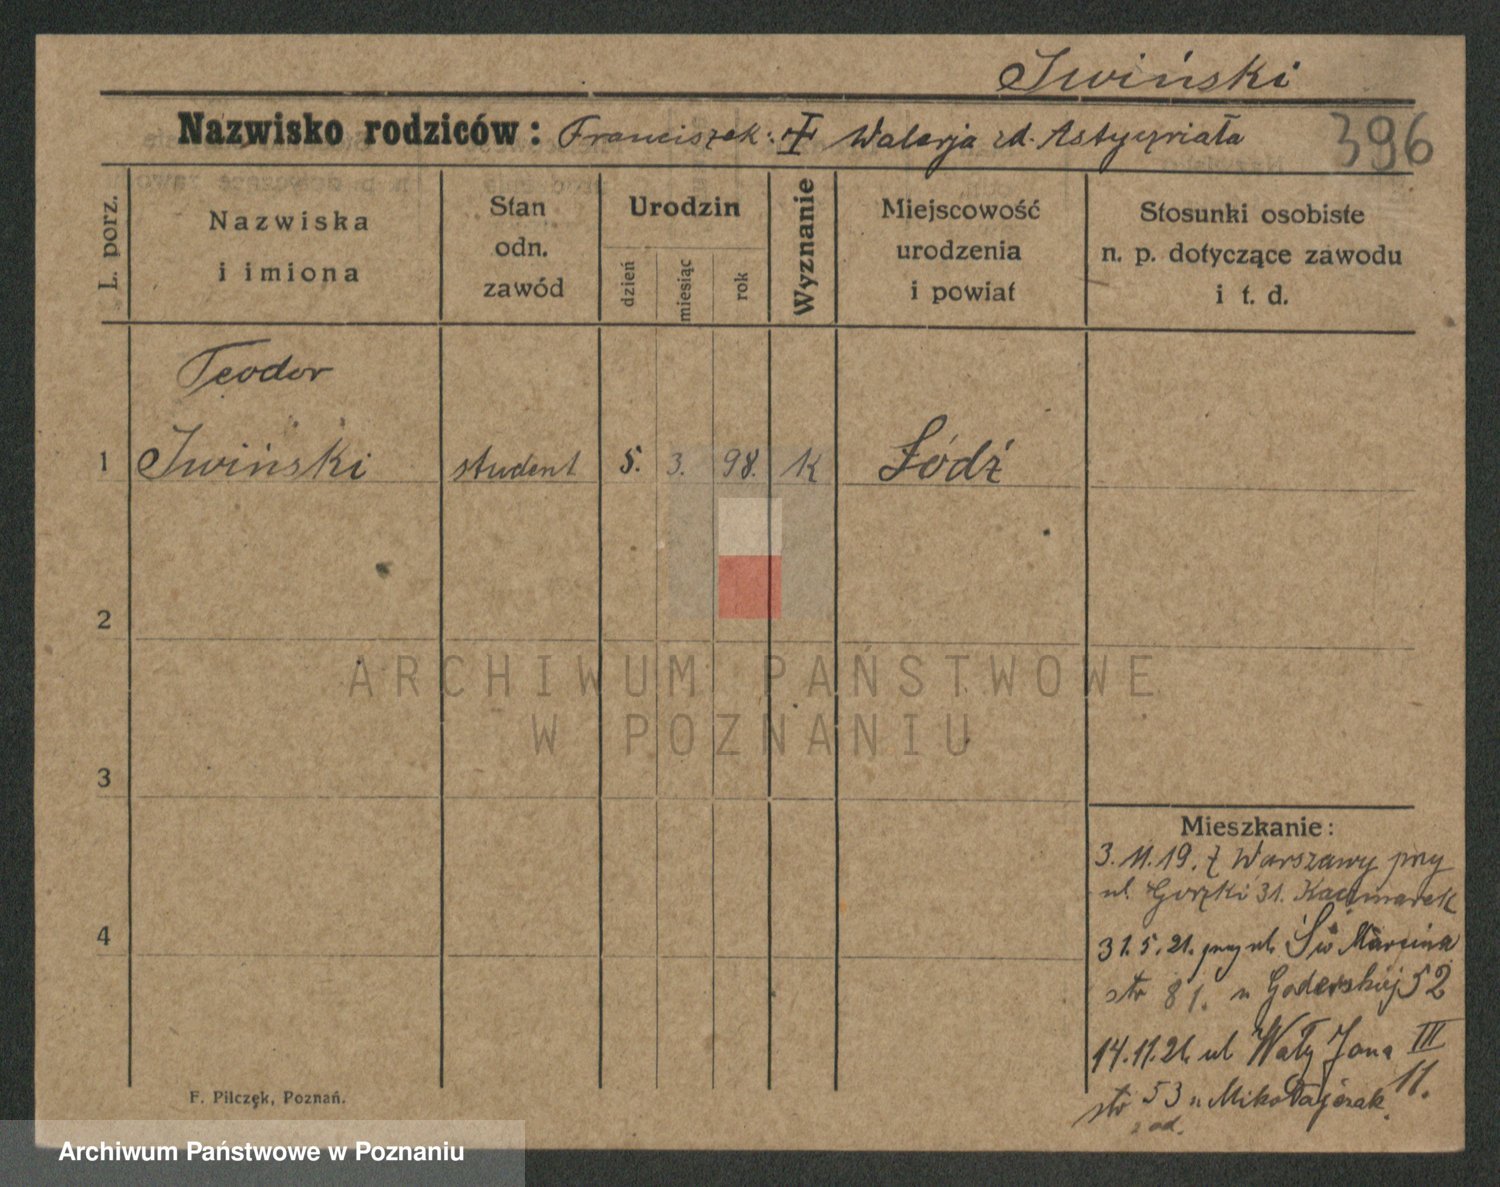 Iwiński
Nazwisko rodziców: Franciszek Walerja zd.
396
L. porz.
Nazwiska
i imiona
Stan
odn.
zawód
Urodzin
dzień
miesiąc
rok
Wyznanie
Miejscowość
urodzenia
i powiat
Stosunki osobiste
n. p. dotyczące zawodu
i t. d.
Teodor
1 Iwiński student 5. 3. 98. k Łódź
2
3
4
ARCHIWUM PAŃSTWOWE
W POZNANIU
Mieszkanie:
3.11.19. z Warszawy przy
ul. 31. Kaczmarek
31.5.21. przy ul. Św Marcina
str 81. u 52
14.11.21. ul Wały Jana III
11.
str 53 u Mikołajczak
F. Pilczęk, Poznań.
Archiwum Państwowe w Poznaniu